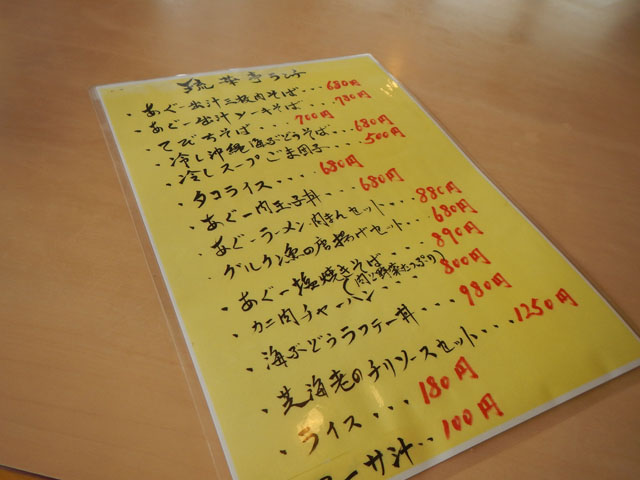 琉華亭ランチ
・あぐー出汁三枚肉そば・・・680円
・あぐー出汁ソーキそば・・・780円
・てびちそば・・・700円
・冷し沖縄海ぶどうそば・・・680円
・冷しスープごま団子・・・500円
・タコライス・・・・680円
・あぐー肉玉子丼・・・・680円
・あぐーラーメン肉まんセット・・・880円
・グルクン魚の唐揚げセット・・・680円
・あぐー塩焼きそば・・・・890円
(肉と野菜たっぷり)
・カニ肉チャーハン・・・・800円
・海ぶどうラフテー丼・・・980円
・芝海老のチリソースセット・・・1250円
・ライス・・・180円
ーサ汁・・100円